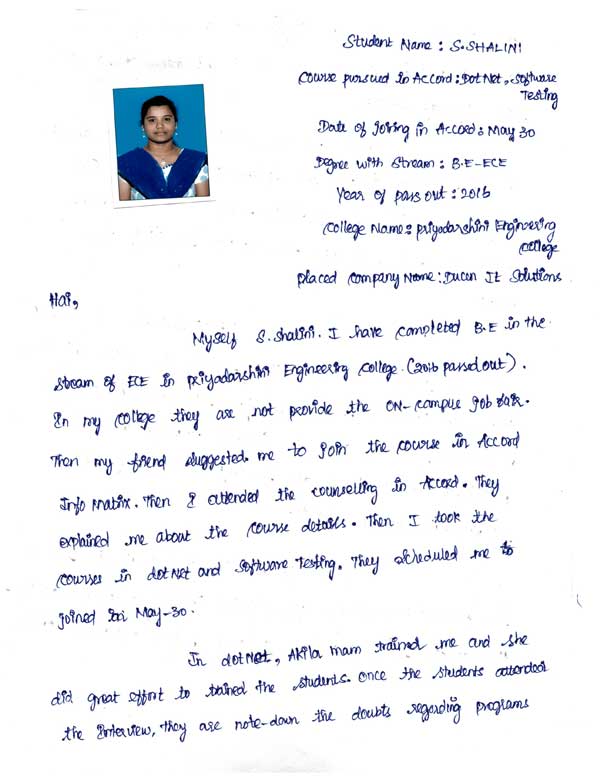 Student Name : S.SHALINI
Course pursued in Accord : Dot Net, Software
Testing
Date of joining in Accord : May 30
Degree with Stream : B.E-ECE
Year of pass out : 2016
College Name : Priyadarshini Engineering
College
Placed Company Name : Ducen It Solutions
Hai,
Myself S.Shalini. I have completed B.E in the
Stream of ECE in Priyadarshini Engineering College. (2016 passed out).
In my college they are not provide the ON-campus job fair.
Then my friend suggested me to join the course in Accord
Info Matrix. Then I attended the counselling in Accord. They
explained me about the course details. Then I took the
courses in dot Net and Software Testing. They scheduled me to
joined for May-30.
In dotNet, Akila mam trained me and she
did great effort to trained the students. Once the students attended
the interview, they are note-down the doubts regarding programs